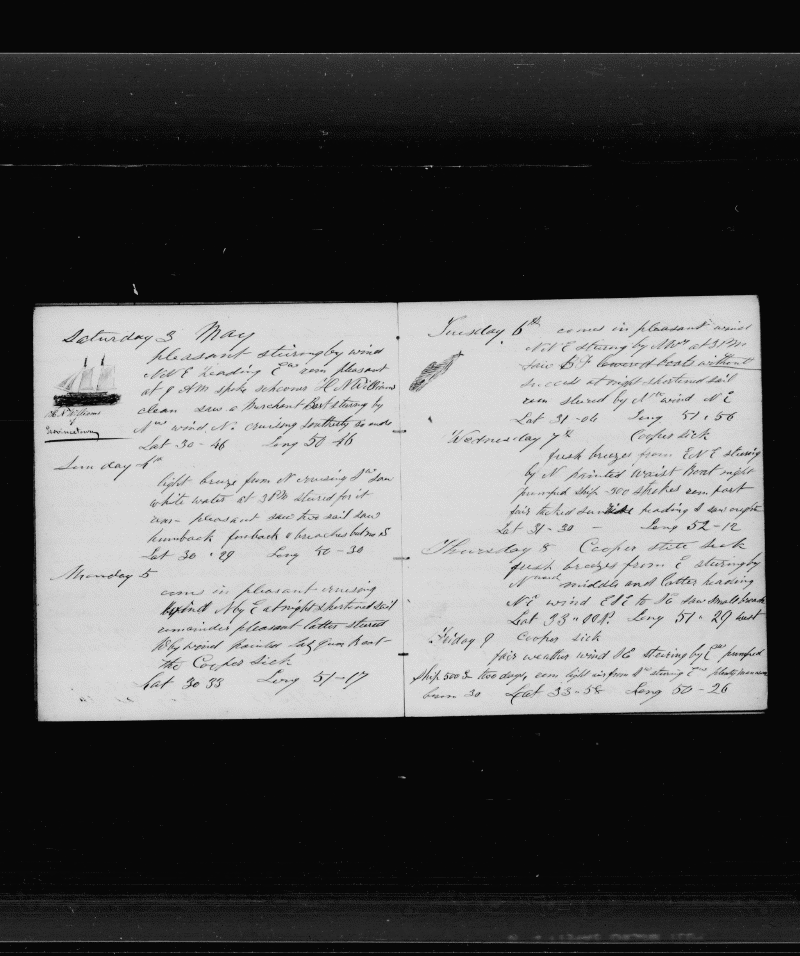 Saturday 3 May
pleasant steering by wind
NNE heading Eas rem pleasant
at 9 AM spoke schooner H N Williams
clean saw a Merchant Bark steering by
Nrd wind N. cruising southerly so ends
Lat 30-46 Long 50 46
H. N. Williams
Provincetown
Sunday 4th
light breeze from N cruising saw
white water at 3 PM steered for it
rem pleasant saw two sail saw
humback finback & breaches but no
Lat 30 29 Long 50-30
Monday 5
com in pleasant cruising
N by E at night shortened sail
remainder pleasant latter steered
by wind painted Lab Boat
the Cooper Sick
Lat 30 33 Long 51-17
Tuesday 6th comes in pleasant wind
NNE steering by at 3 PM
Saw B F lowered boats without
success at night shortened sail
rem steered by wind NE
Lat 31-04 Long 51.56
Wednesday 7th Cooper sick
fresh breezes from ENE steering
by N painted Waist Boat night
pumped ship 300 strokes rem part
fair heading & saw
Lat 31-30 - Long 52-12
Thursday 8 Cooper still sick
fresh breezes from E steering by
N middle and latter heading
NE wind ESE to SE saw small
Lat 33-00 N. Long 51-29 west
Friday 9 Cooper sick
fair weather wind SE steering by pumped
Ship 500 two days, rem light airs from steering plenty
30 Lat 33-58 Long 50-26